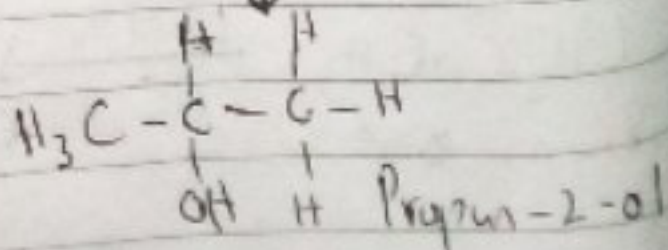 H H
H₃C - C - C - H
OH H Propan-2-ol